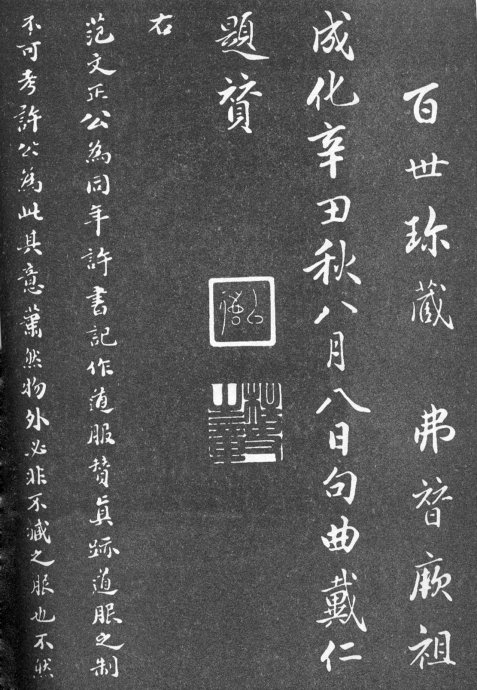 百世珎蔵 弗替厥祖
成化辛丑秋八月八日句曲戴仁
題賛
右
范文正公為同年許書記作道服賛真跡道服之制
不可考許公為此其意蕭然物外必非不臧之服也不然